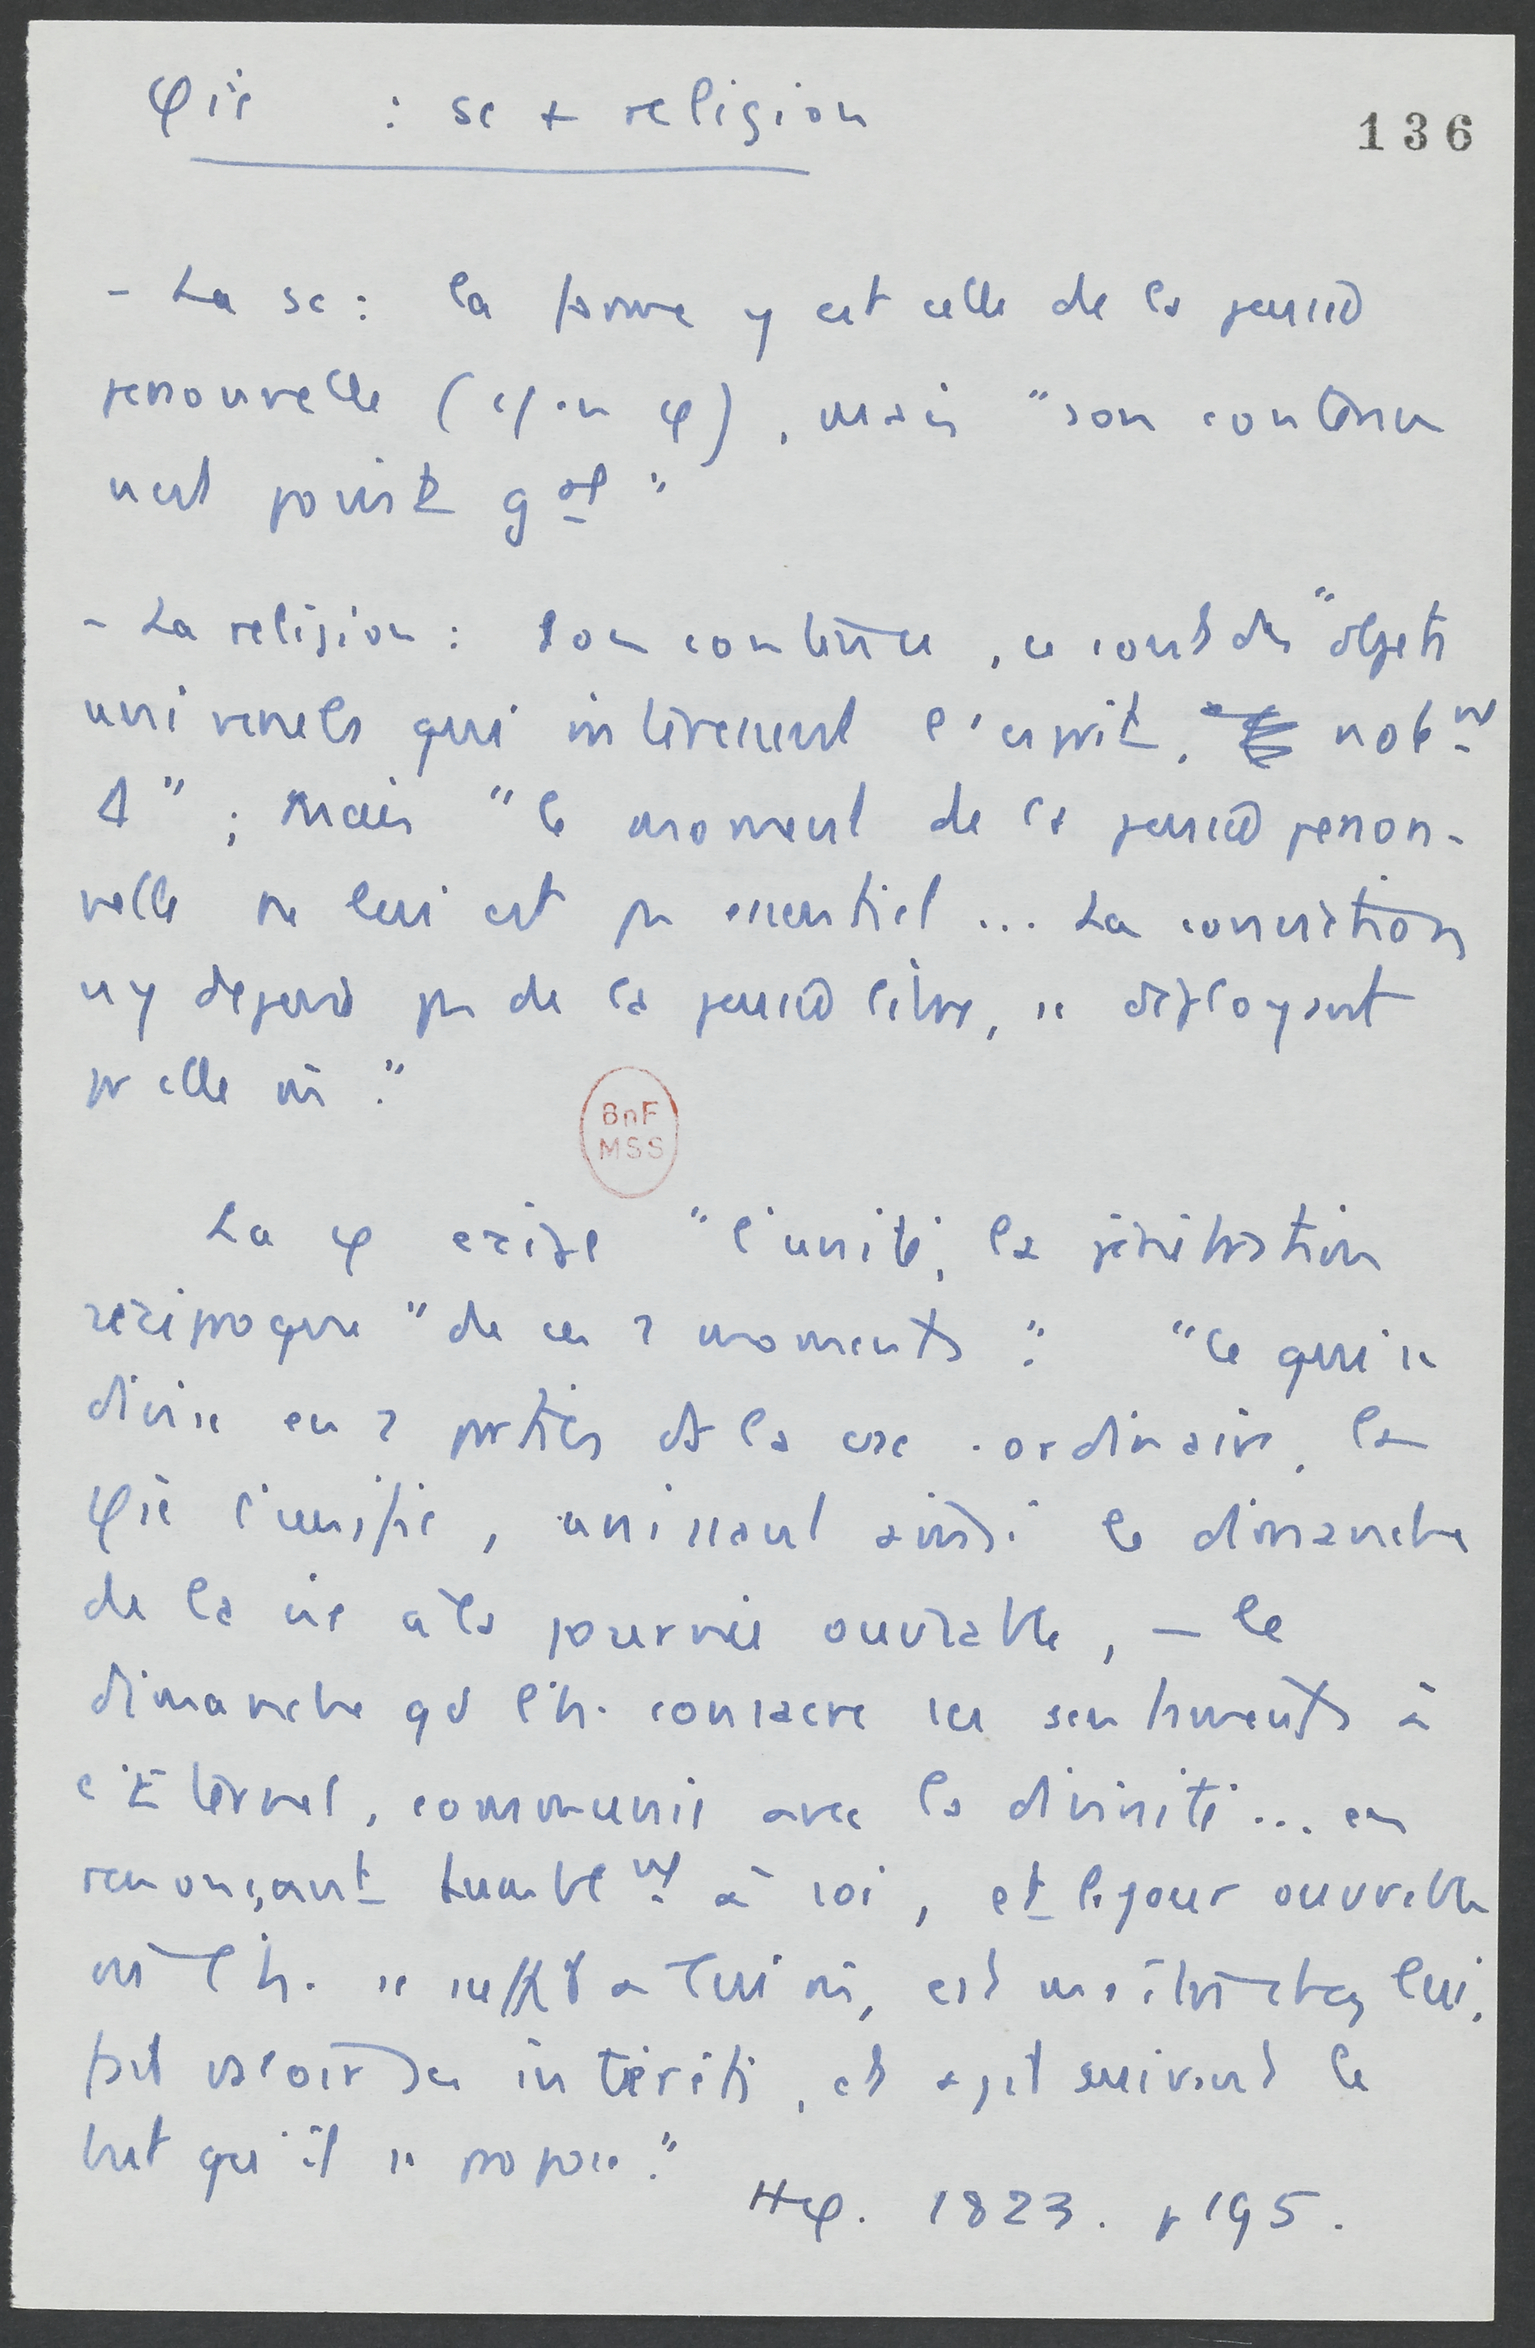 φiè : sc + religion
136
- La sc : la forme y est celle de la pensée
personnelle (cf. en φ), mais "son contenu
n'est point gal"
- La religion : son contenu, ce sont des "objets
universels qui intéressent l'esprit, not mt
Δ" ; mais "le moment de la pensée person-
nelle ne lui est pas essentiel... La conviction
n'y dépend pas de la pensée libre, se déployant
pr elle m̂."
BnF
MSS
La φ exige "l'unité, la pénétration
réciproque "de ces 2 moments : "Ce qui se
divise en 2 parties ds la csc. ordinaire, la
φiè l'unifie, unissant ainsi le dimanche
de la vie à la journée ouvrable, — le
dimanche qd l'h. consacre ses sentiments à
l'Eternel, communie avec la divinité... en
renonçant humblemt à soi, et le jour ouvrable
où l'h. se suffit à lui m̂, est maître chez lui,
fait valoir ses intérêts, et agit suivant le
but qu'il se propose."
Hφ. 1823. p 195.